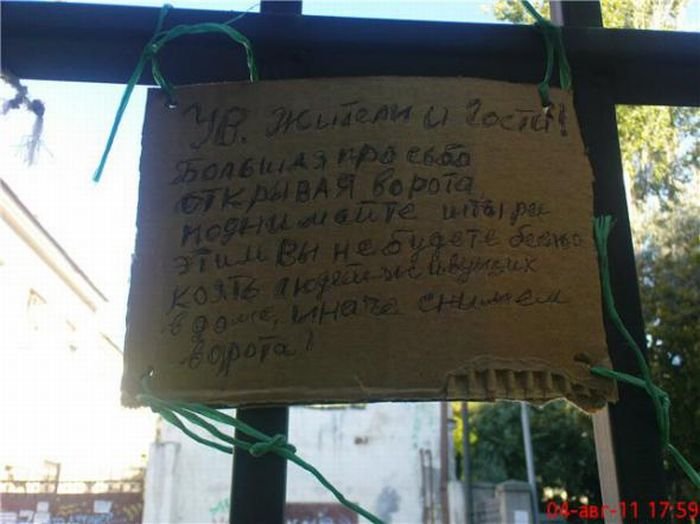 УВ. Жители и Гости!
Большая просьба
открывая ворота,
поднимайте штыри
этим Вы не будете беспо
коять людей живущих
в доме, иначе снимем
ворота!
04-авг-11 17:59